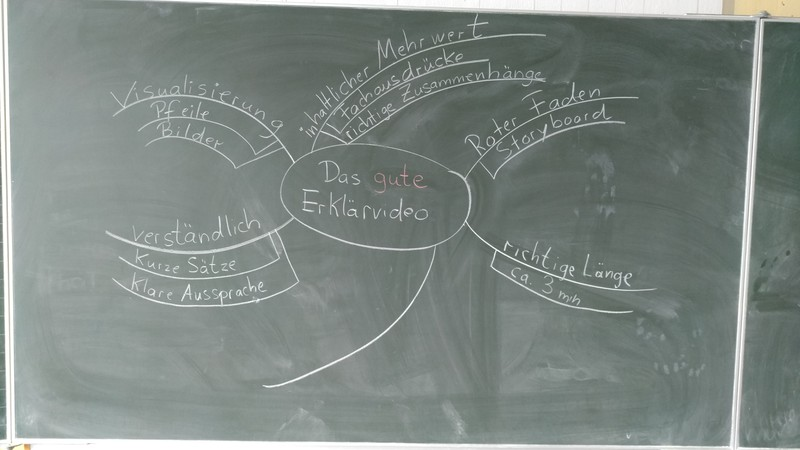 Das gute
Erklärvideo
Visualisierung
Pfeile
Bilder
inhaltlicher Mehrwert
Fachausdrücke
richtige Zusammenhänge
Roter Faden
Storyboard
verständlich
Kurze Sätze
Klare Aussprache
richtige Länge
ca. 3 min